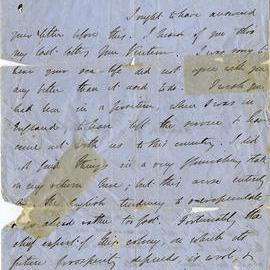 I ought to have answered
your letter before this. I hear of you thro
my last letters from
I was sorry to
hear your sea life did not agree with you
any better than it used to do. I wish you
had been in a position, when I was in
England, to have left the service & have
come out with us to this country. I did
not find things in a very flourishing state
on my return here, but this arose entirely
the English tendency to overspeculate
& go ahead rather too fast. Fortunately the
chief export of this colony, on which its
future prosperity depends is wool, &